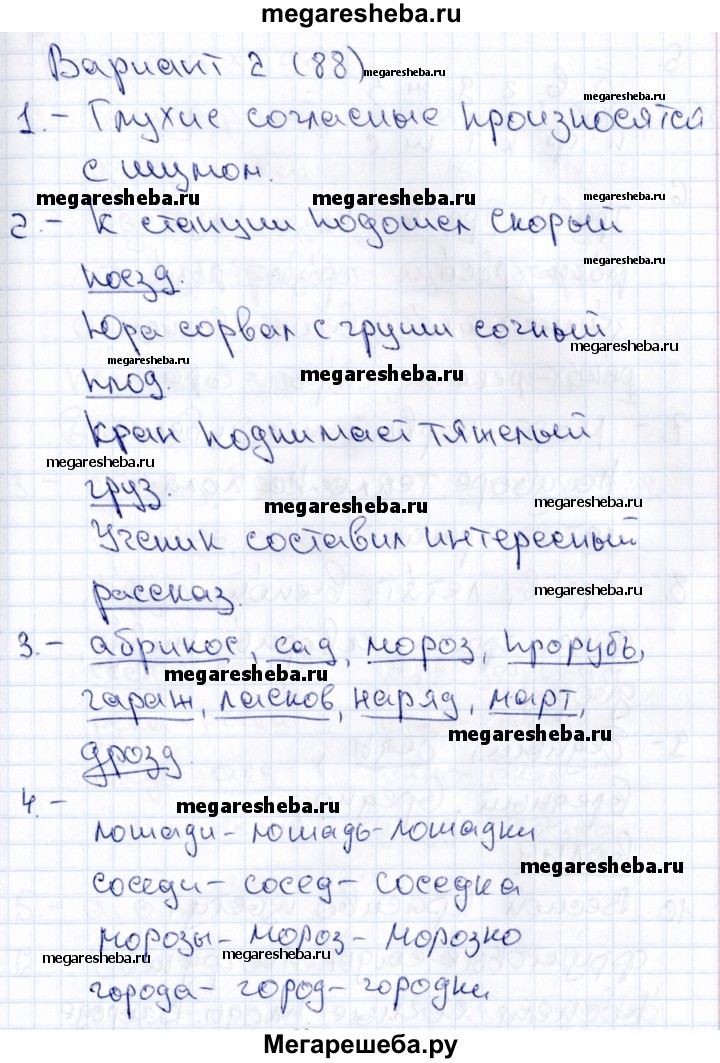 megaresheba.ru
Вариант 2 (88) megaresheba.ru
megaresheba.ru
1.- Глухие согласные произносятся
с шумом.
megaresheba.ru megaresheba.ru
2.- К станции подошел скорый
megaresheba.ru
поезд.
Юра сорвал с груши сочный
megaresheba.ru
megaresheba.ru
плод. megaresheba.ru
Кран поднимает тяжелый
megaresheba.ru
груз. megaresheba.ru
megaresheba.ru
Ученик составил интересный
рассказ. megaresheba.ru
3.- абрикос, сад, мороз, прорубь,
megaresheba.ru
гараж, ласков, наряд, март,
megaresheba.ru
дрозд.
4.- megaresheba.ru
лошади - лошадь - лошадки
megaresheba.ru
соседи - сосед - соседка
морозы - мороз - морозко
megaresheba.ru megaresheba.ru
города - город - городки
Мегарешеба.ру